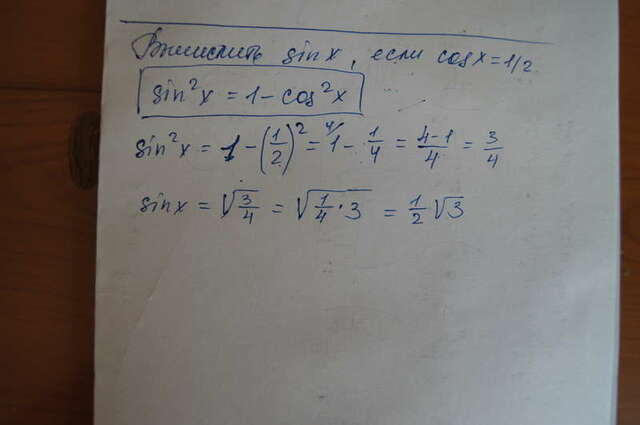 Вычислить sin x, если cos x = 1/2
sin²x = 1 - cos²x
sin²x = 1 - (1/2)² = 1 - 1/4 = 4-1/4 = 3/4
sin x = √3/4 = √1/4 · 3 = 1/2 √3